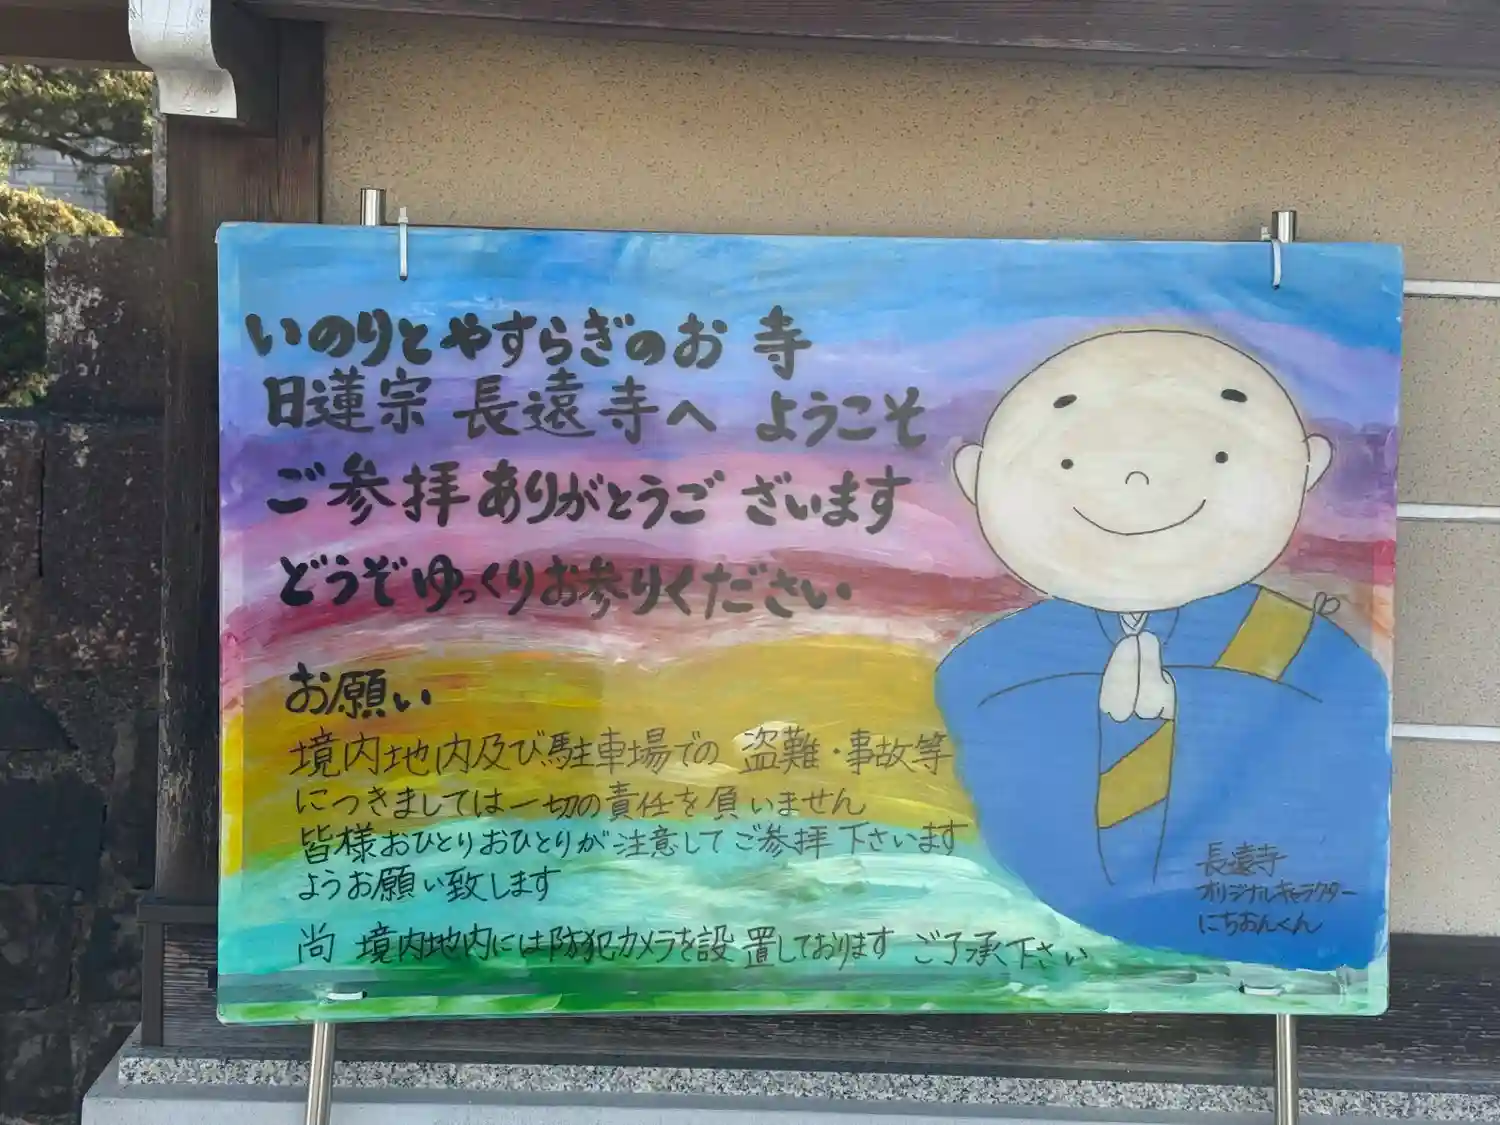 いのりとやすらぎのお寺
日蓮宗 長遠寺へ ようこそ
ご参拝ありがとうございます
どうぞゆっくりお参りください
お願い
境内地内及び駐車場での 盗難・事故等
につきましては一切の責任を負いません
皆様おひとりおひとりが注意してご参拝下さいます
ようお願い致します
尚 境内地内には防犯カメラを設置しております ご了承下さい
長遠寺
オリジナルキャラクター
にちおんくん